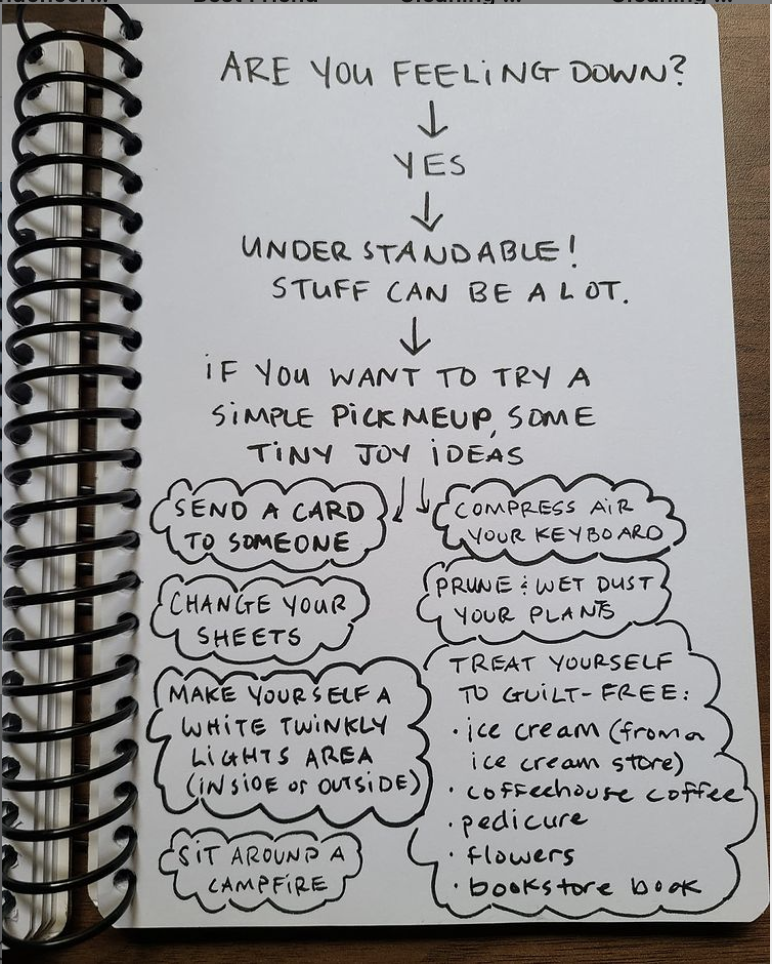 ARE YOU FEELING DOWN?
YES
UNDERSTANDABLE!
STUFF CAN BE A LOT.
iF YOU WANT TO TRY A
SiMPLE PiCKMEUP, SOME
TiNY JOY iDEAS
SEND A CARD
TO SOMEONE
COMPRESS AiR
YOUR KEYBOARD
CHANGE YOUR
SHEETS
PRUNE & WET DUST
YOUR PLANTS
MAKE YOURSELF A
WHiTE TWINKLY
LiGHTS AREA
(iNSiDE or OUTSiDE)
SiT AROUND A
CAMPFiRE
TREAT YOURSELF
TO GUiLT-FREE:
· ice cream (from a
ice cream store)
· coffeehouse coffee
· pedicure
· flowers
· bookstore book